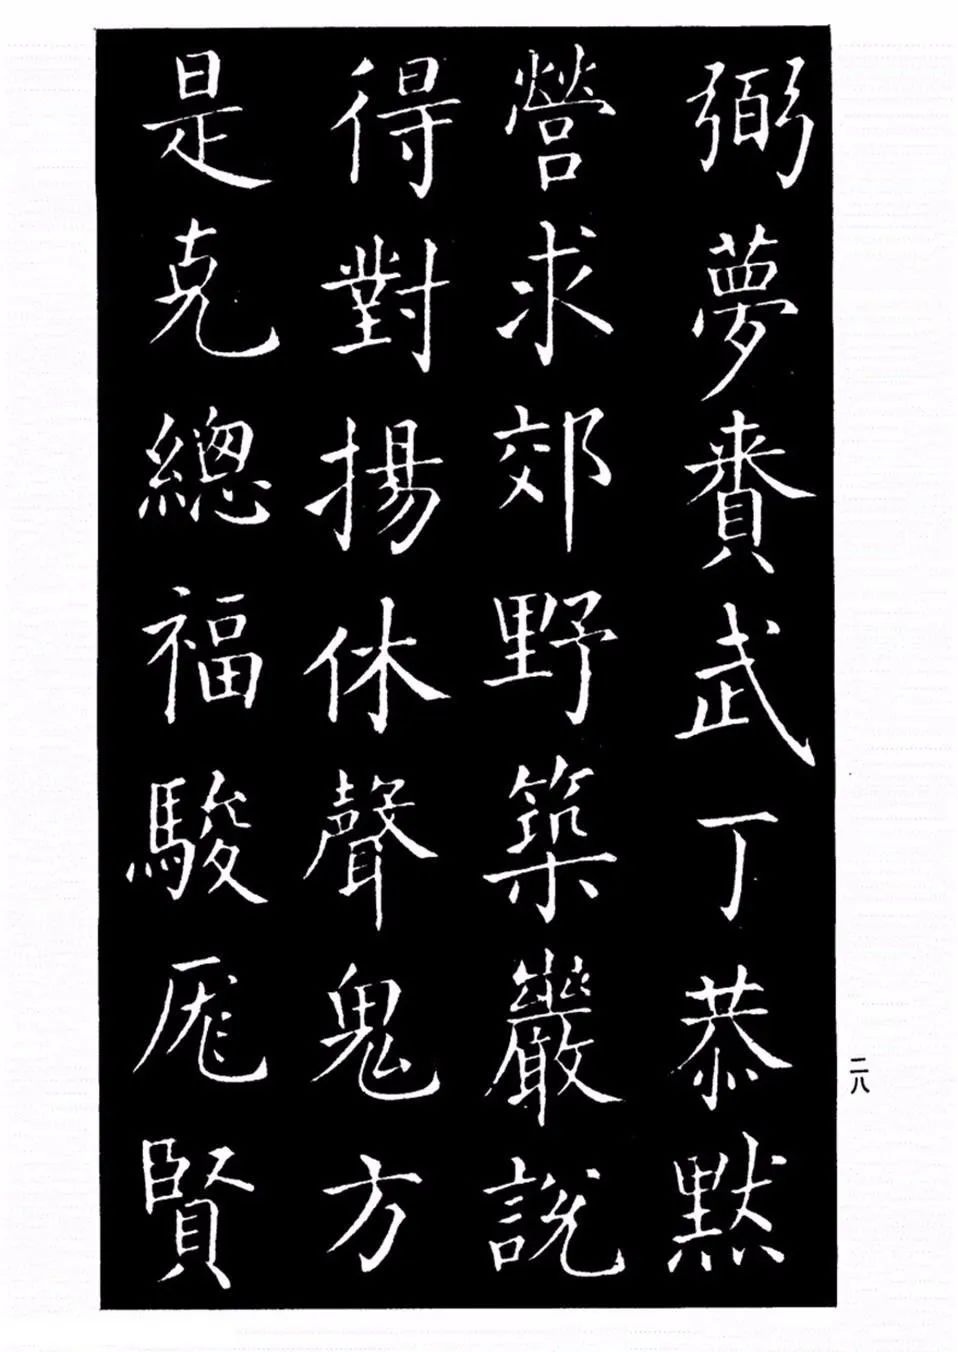 弼夢賚武丁恭默
營求郊野築巖說
得對揚休聲鬼方
是克總福駿厖賢
二八